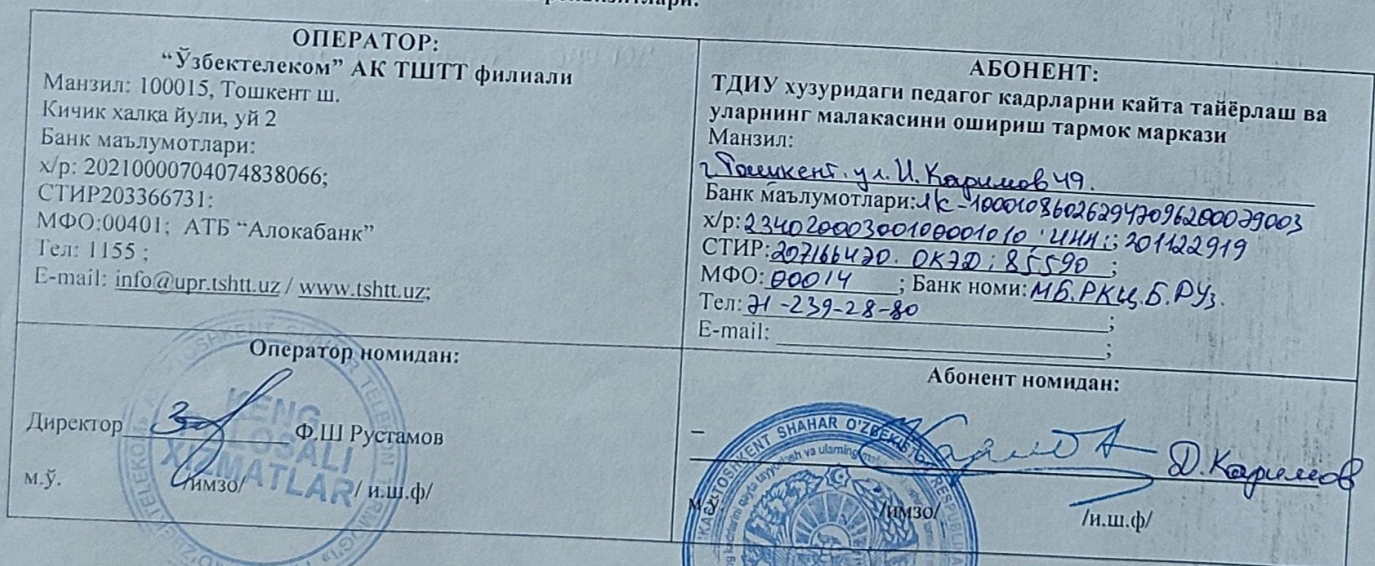 ОПЕРАТОР:
“Ўзбектелеком” АК ТШТТ филиали
Манзил: 100015, Тошкент ш.
Кичик халқа йули, уй 2
Банк маълумотлари:
х/р: 20210000704074838066;
СТИР203366731:
МФО:00401; АТБ “Алокабанк”
Тел: 1155 ;
E-mail: info@upr.tshtt.uz / www.tshtt.uz;
АБОНЕНТ:
ТДИУ хузуридаги педагог кадрларни кайта тайёрлаш ва
уларнинг малакасини ошириш тармок маркази
Манзил:
г. Тошкент. ул. И. Каримов 49.
Банк маълумотлари: лк-100010860262947096200079003
х/р: 23402000300100001010; ИНН:; 201122919
СТИР: 207166470. ОКЭД: 85590 ;
МФО: 00014 ; Банк номи: МБ.РКЦ.Б.РУз.
Тел: 71-239-28-80 ;
E-mail: ;
Оператор номидан:
Директор Ф.Ш Рустамов
м.ў. /имзо/ / и.ш.ф/
KENG
XIZMATLAR
Абонент номидан:
Д. Каримов
/имзо/ /и.ш.ф/
TOSHKENT SHAHAR O'ZBEKISTON RESPUBLIKA